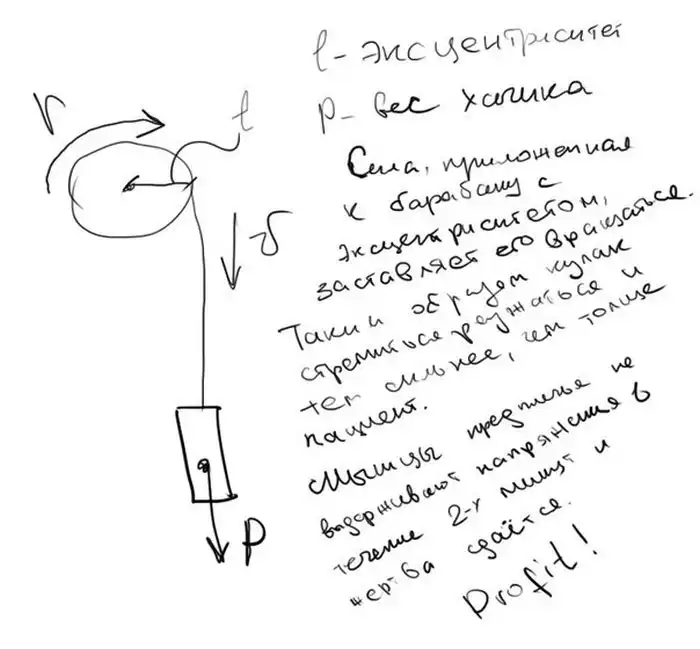 l - эксцентриситет
P - вес хачика
r
l
Сила, приложенная
к барабану с
эксцентриситетом,
заставляет его вращаться.
Таким образом кулак
стремиться разжаться и
тем сильнее, чем толще
пациент.
v
Мышцы предплечья не
выдерживают напряжения в
течение 2-х минут и
жертва сдаётся.
P
Profit!